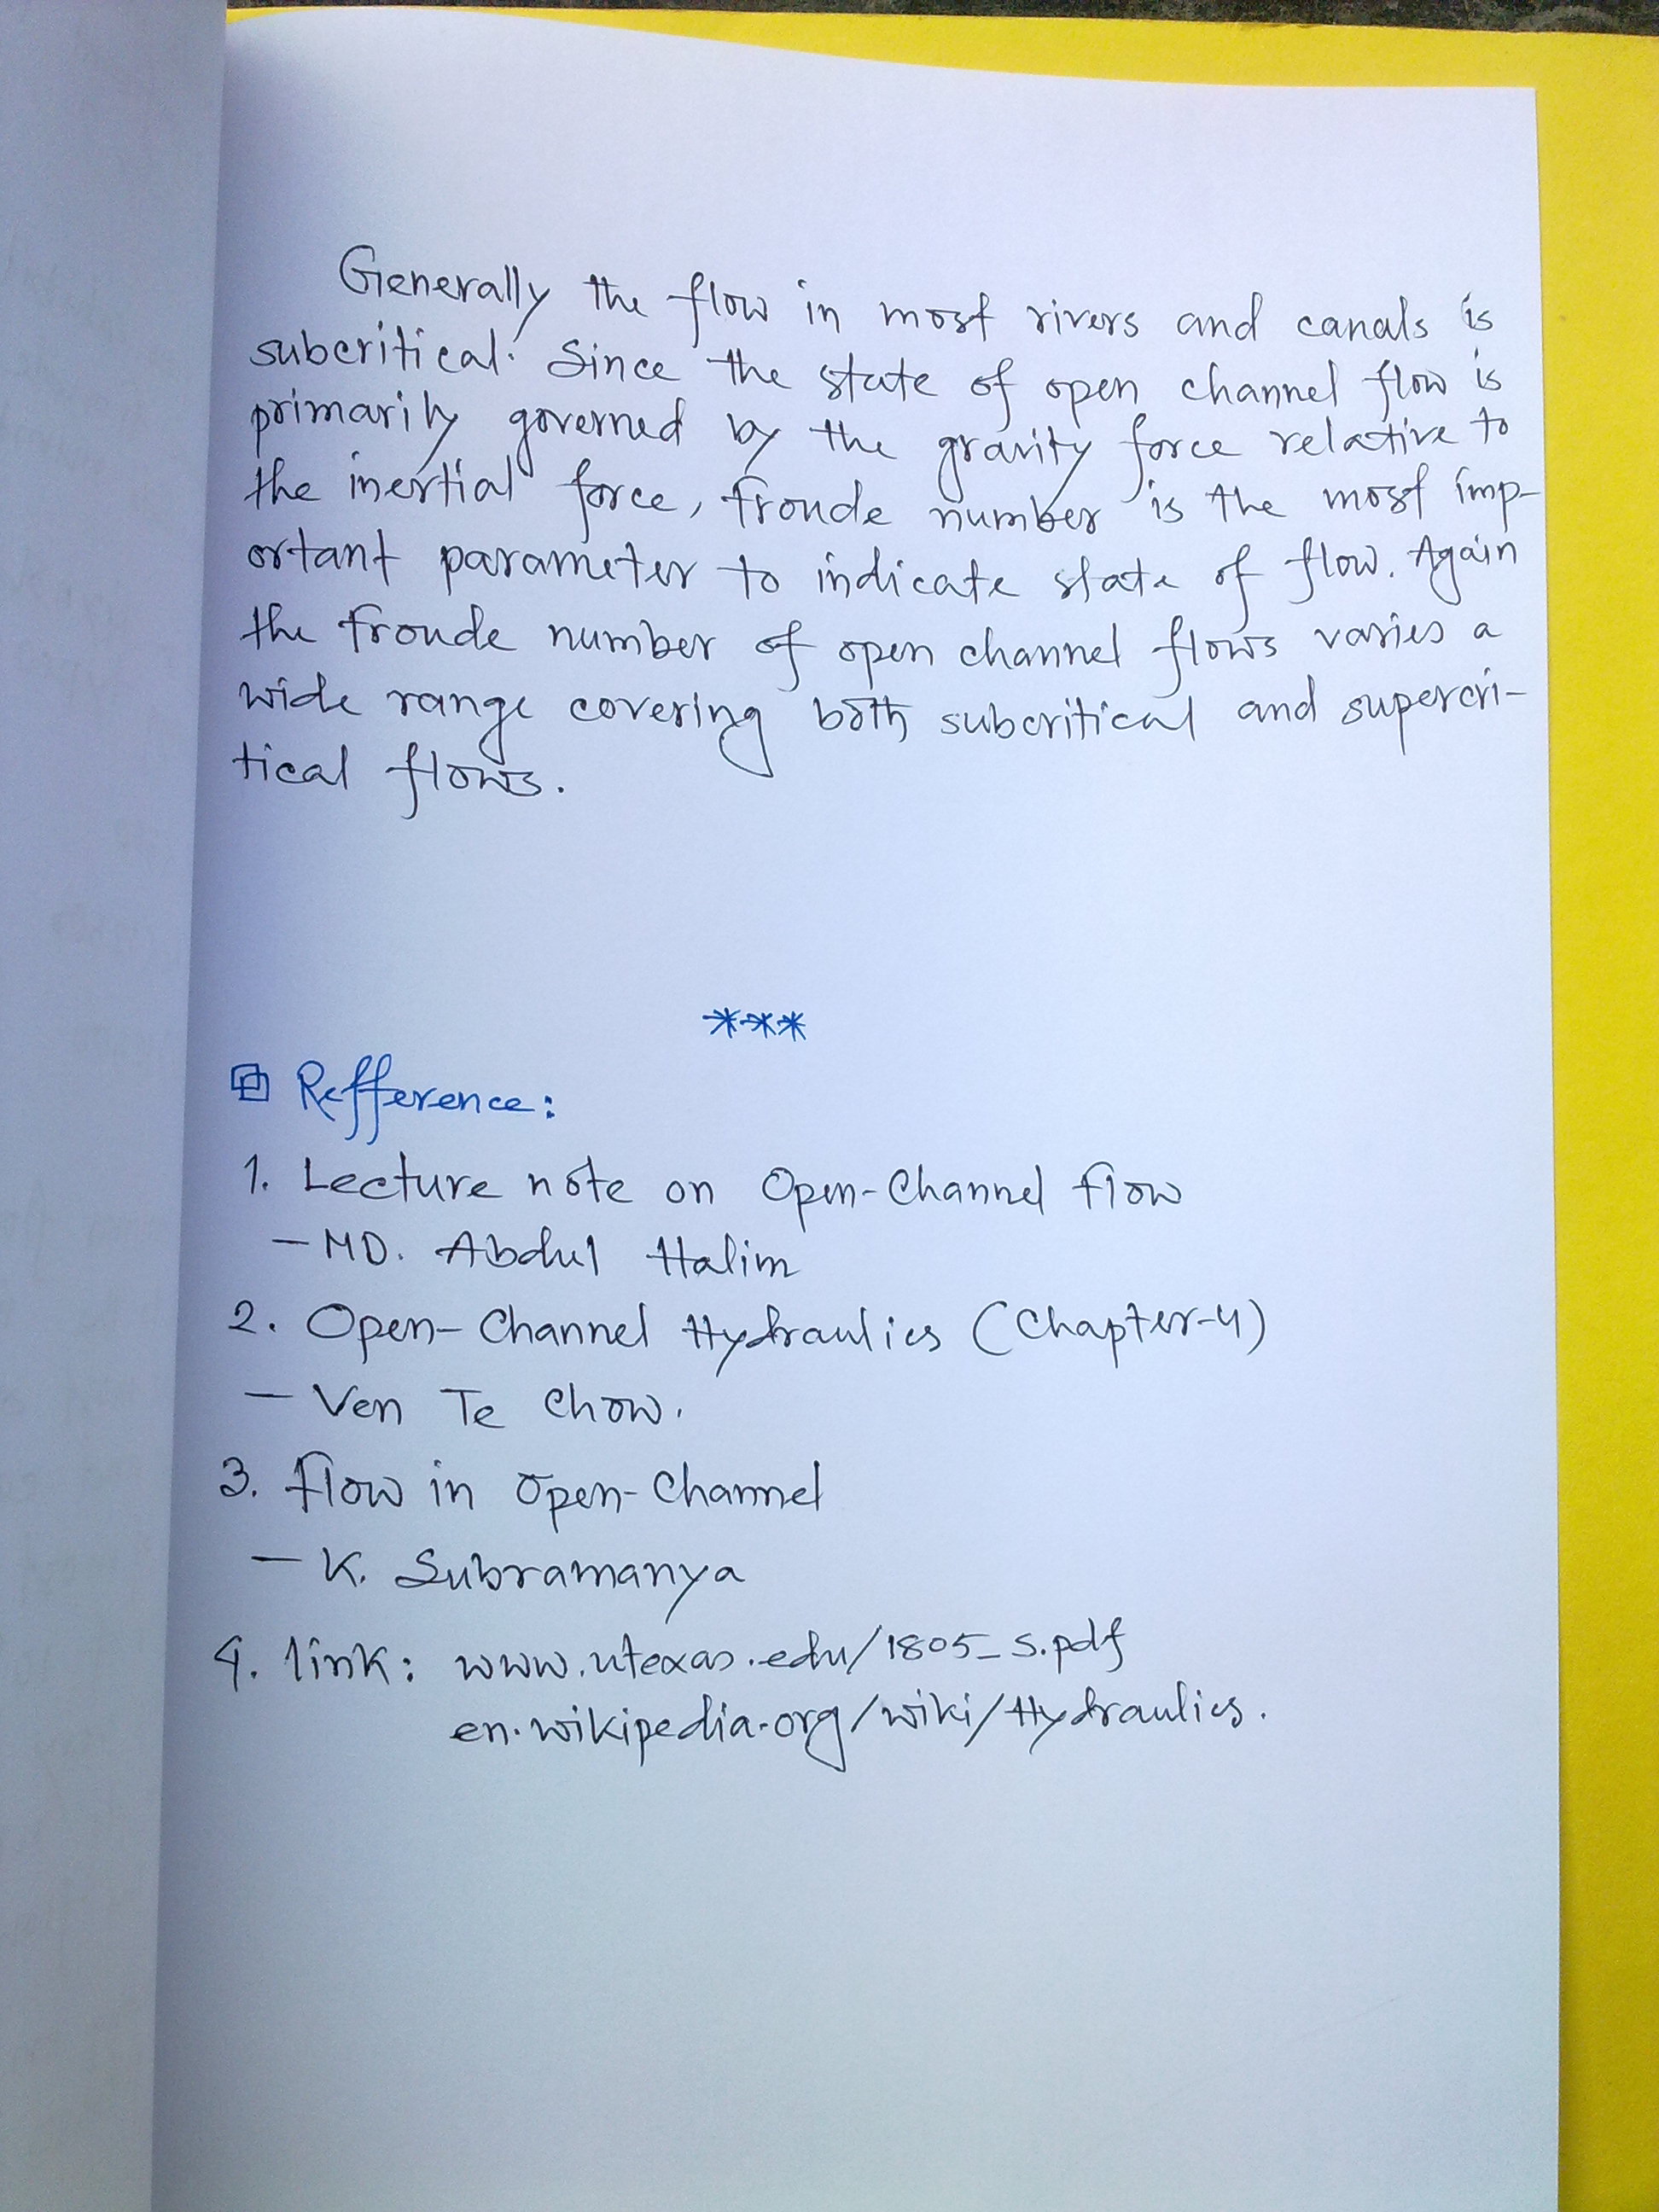 Generally the flow in most rivers and canals is
subcritical. Since the state of open channel flow is
primarily governed by the gravity force relative to
the inertial force, froude number is the most imp-
ortant parameter to indicate state of flow. Again
the froude number of open channel flows varies a
wide range covering both subcritical and supercri-
tical flows.
***
Refference:
1. Lecture note on Open-Channel flow
- MD. Abdul Halim
2. Open-Channel Hydraulics (Chapter-4)
- Ven Te Chow.
3. flow in Open-Channel
- K. Subramanya
4. link: www.utexas.edu/1805_s.pdf
en.wikipedia.org/wiki/Hydraulics.